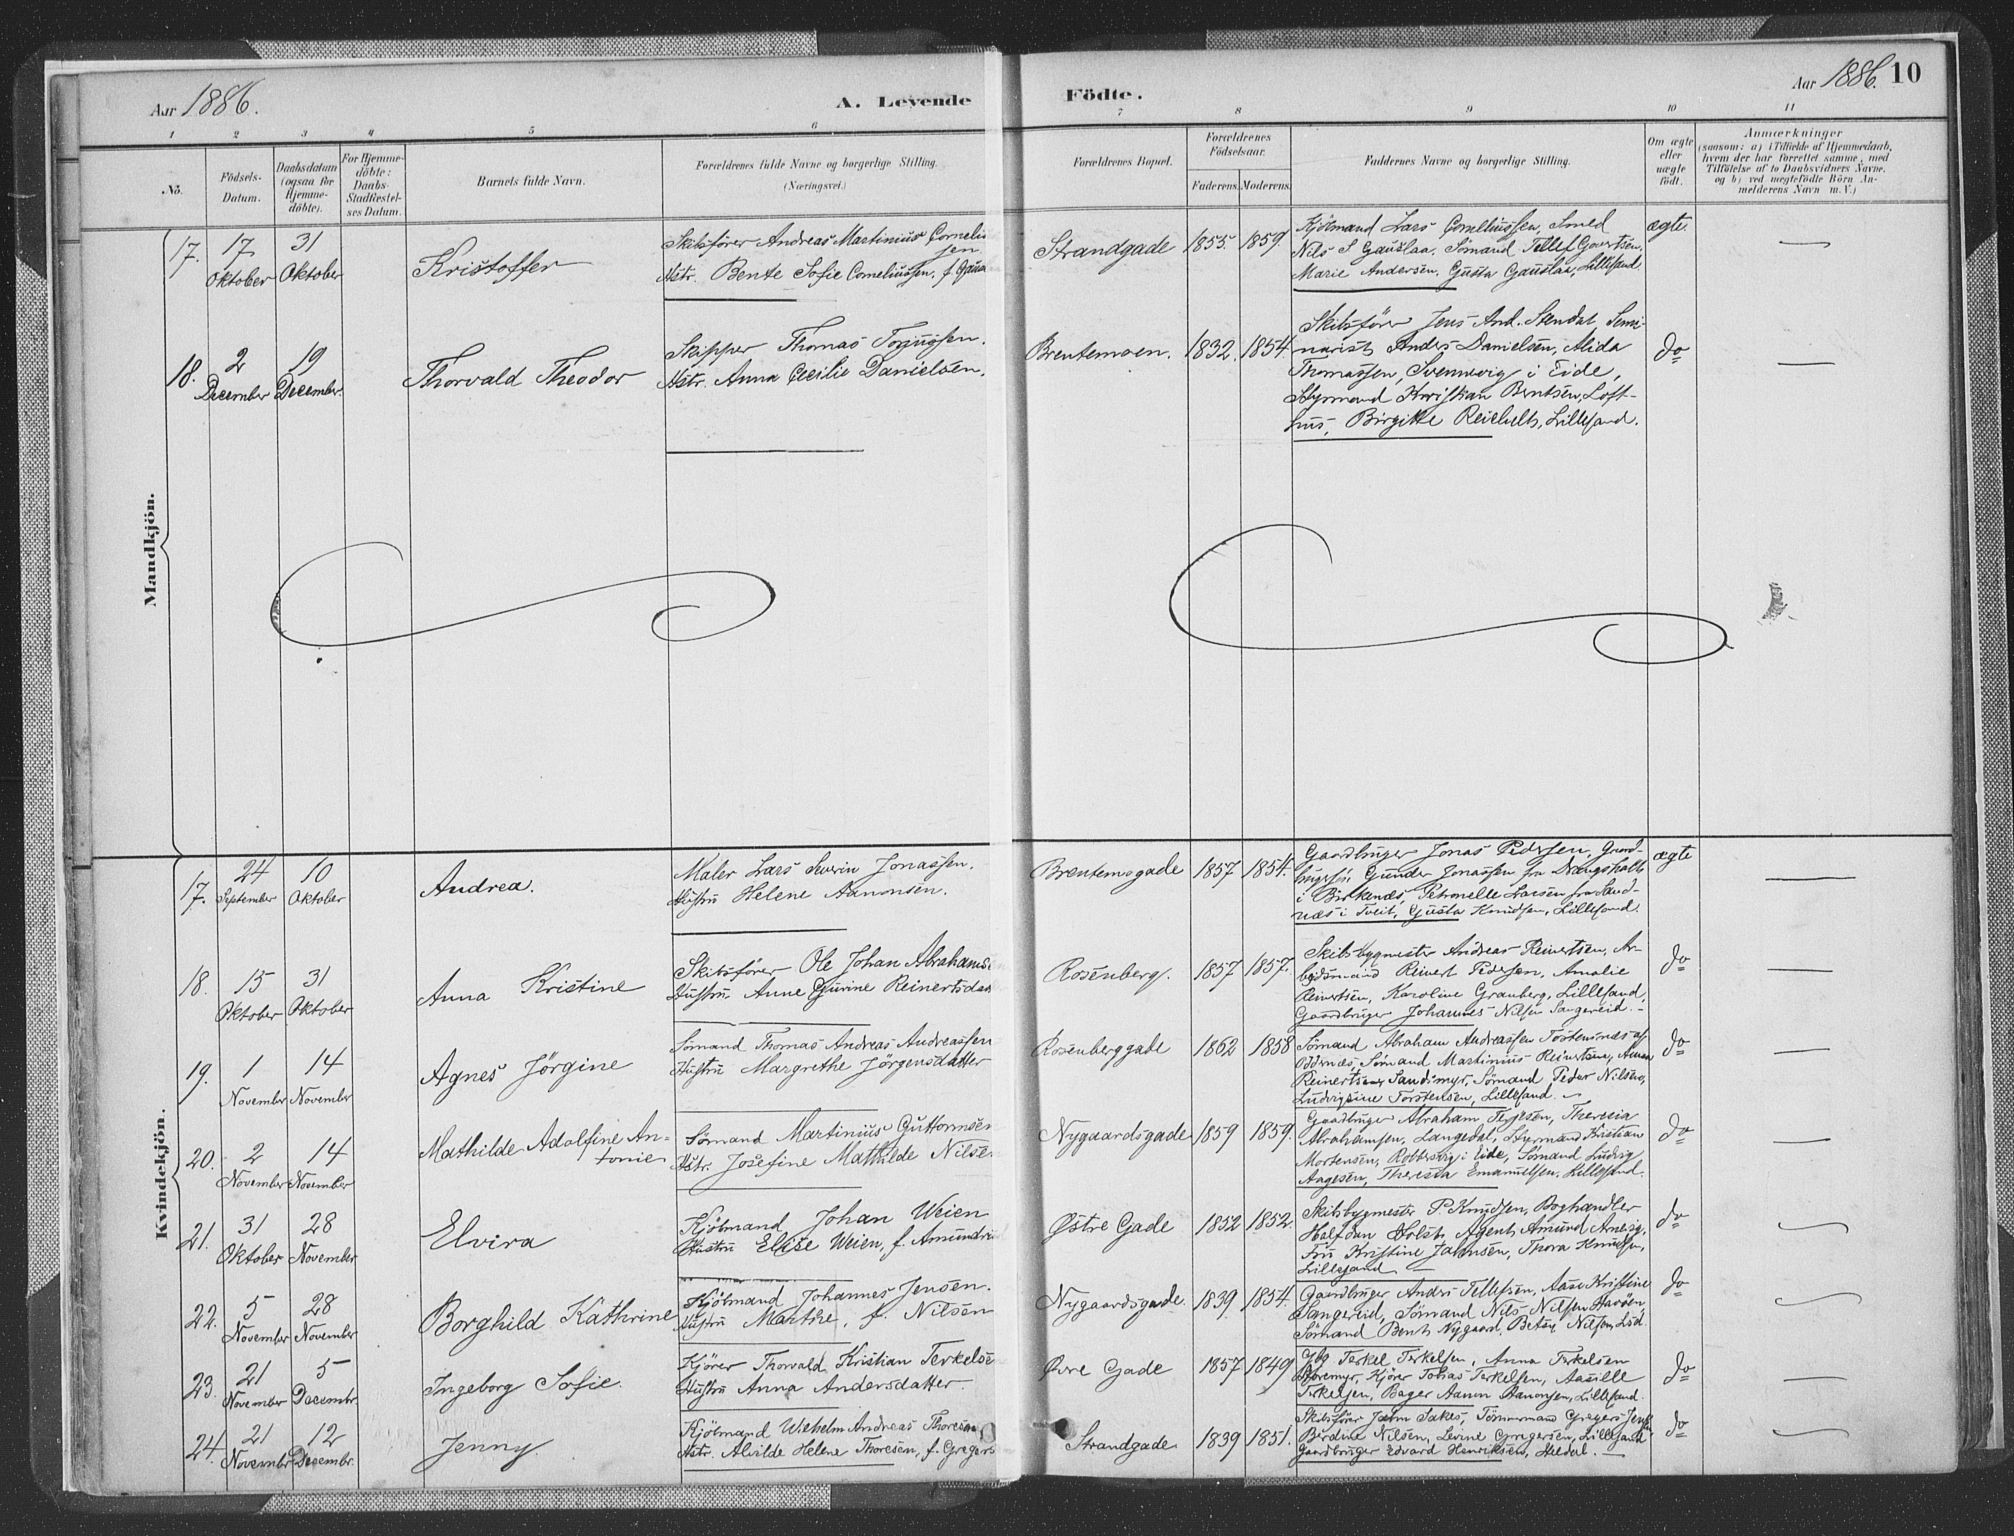 Aar 1886.
A. Levende
Födte.
Aar 1886. 10
1 2 3 4 5 6 7 8 9 10 11
No.
Födsels-Datum.
Daabsdatum (ogsaa for Hjemme-döbte).
For Hjemme-döbte: Daabs-Stadfæstel-ses Datum.
Barnets fulde Navn.
Forældrenes fulde Navne og borgerlige Stilling.
(Næringsvei.)
Forældrenes Bopæl.
Forældrenes Födselsaar.
Faderens. Moderens.
Faddernes Navne og borgerlige Stilling.
Om ægte eller uægte födt.
Anmærkninger
(saasom: a) i Tilfælde af Hjemmedaab, hvem der har forrettet samme, med Tilföielse af to Daabsvidners Navne, og b) ved uægtefödte Börn An-melderens Navn m. V.)
Mandkjön.
17. 17 Oktober 31 Oktober
Kristoffer
Skibsfører Andreas Martinius Cornelius
sen
Hstr. Bente Sofie Corneliussen, f. Gaus
Strandgade 1855. 1859.
Kjöbmand Lars Corneliussen, Smed
Nils S Gauslaa, Sömand Tellef Govertsen,
Marie Andersen, Gusta Gauslaa, Lillesand
ægte.
18. 2 December 19 December.
Thorvald Theodor
Skipper Thomas Torjussen.
Hstr. Anna Cecilie Danielsen.
Brentemoen. 1832. 1854
Skibsfører Jens And. Stendal, Semi-
narist Anders Danielsen, Alida
Thomassen, Svennevig i Eide,
Styrmand Kristian Berntsen, Loft-
hus, Birgitte Reichelt, Lillesand.
do
Kvindekjön.
17. 24 September 10 Oktober
Andrea.
Maler Lars Severin Jonassen.
Hustru Helene Aanonsen.
Brentemogade 1857 1854.
Gaardbruger Jonas Pedersen, Gaard-
bruger Gunder Jonassen fra
i Birkenæs, Petronelle Larsen fra
næs i Tveit, Gusta Knudsen, Lillesand.
ægte
18. 15 Oktober 31 Oktober
Anna Kristine
Skibsfører Ole Johan Abrahamse
Hustru Anne Gurine Reinertsdat
Rosenberg. 1857 1857.
Skibsbygmester Andreas Reinertsen, Ar-
beidsmand Reinert Pedersen, Amalie
Reinertsen, Karoline Granberg, Lillesand,
Gaardbruger Johannes Nilsen Sangereid.
do
19. 1 November 14 November
Agnes Jörgine
Sömand Thomas Andreas Andreassen
Hustru Margrethe Jörgensdatter
Rosenberggade 1862 1858
Sömand Abraham Andreassen
Sömand Martinius Reinertsen,
Reinertsen, Sandsmyr, Sömand Peder Nilsen,
Torstensen, Lillesand.
do
20. 2 November 14 November
Mathilde Adolfine An-
tonie
Sömand Martinius Guttormsen
Hstr. Josefine Mathilde Nilsen
Nygaardsgade 1859 1859.
Gaardbruger Abraham Terjesen, Theresia
Abrahamsen, Langedal, Styrmand Kristian
Mortensen, i Eide, Sömand Ludvig
Aagesen, Theresia Emanuelsen, Lillesand.
do
21. 31 Oktober 28 November
Elvira
Kjöbmand Johan Weien
Hustru Elise Weien, f. Amundsen
Østre Gade 1852 1852.
Skibsbygmester P Knudsen, Boghandler
Halfdan Holst, Agent Amund
Fru Kristine Jahnsen, Thora Knudsen,
Lillesand
do
22. 5 November 28 November
Borghild Kathrine
Kjöbmand Johannes Jensen.
Hustru Marthe, f. Nilsen
Nygaardsgade. 1839. 1854.
Gaardbruger Anders Tellefsen, Aase Kristine
Sangereid, Sömand Nils Nilsen
Sömand Bent Nygaard, Betsy Nilsen,
do
23. 21 November 5 Decembr.
Ingeborg Sofie.
Kjörer Thorvald Kristian Terkelse
Hustru Anna Andersdatter.
Øvre Gade 1857 1849
Gbr. Terkel Terkelsen, Anna Terkelsen
Kjörer Tobias Terkelsen,
Terkelsen, Bager Aanon Aanonsen, Lillesand.
do
24. 21 November 12 Decembr.
Jenny.
Kjöbmand Wilhelm Andreas Thoresen,
Hstr. Alvilde Helene Thoresen, f. Gregers
Strandgade 1839 1851.
Skibsfører Jahn Sakes, Tömmermand Gregers
Berdine Nilsen, Levine Gregersen, Lillesand
Gaardbruger Edvard Henriksen, Heldal.
do